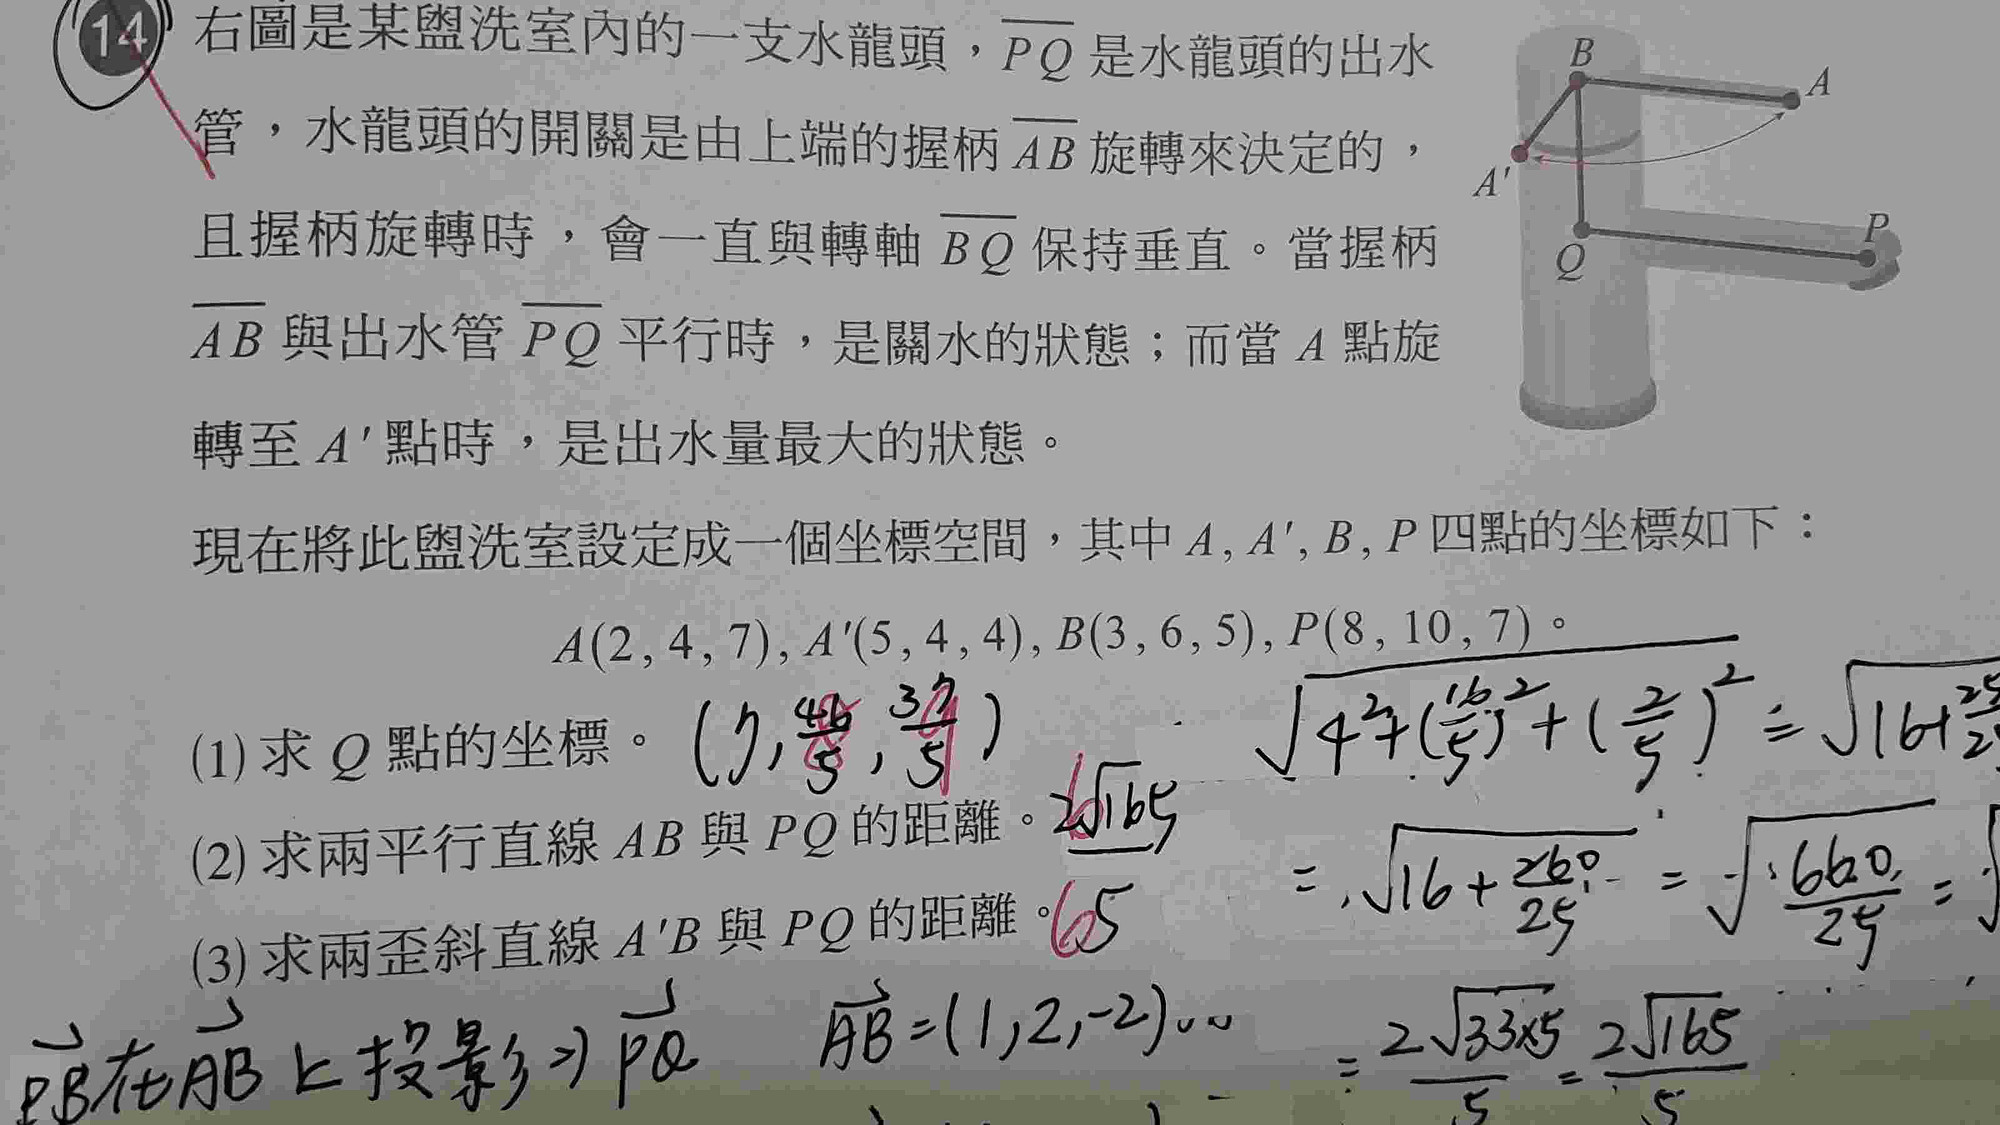 14 右圖是某盥洗室內的一支水龍頭，PQ 是水龍頭的出水
管，水龍頭的開關是由上端的握柄 AB 旋轉來決定的，
且握柄旋轉時，會一直與轉軸 BQ 保持垂直。當握柄
AB 與出水管 PQ 平行時，是關水的狀態；而當 A 點旋
轉至 A' 點時，是出水量最大的狀態。
B
A
A'
Q
P
現在將此盥洗室設定成一個坐標空間，其中 A, A', B, P 四點的坐標如下：
A(2, 4, 7), A'(5, 4, 4), B(3, 6, 5), P(8, 10, 7)。
(1) 求 Q 點的坐標。 (7, 46/5, 37/5)
(2) 求兩平行直線 AB 與 PQ 的距離。 2√165
(3) 求兩歪斜直線 A'B 與 PQ 的距離。 6 5
√4²+(16/5)²+(2/5)² = √16+
= √16+260/25 = √660/25 =
= 2√33×5/5 = 2√165/5
PB在AB上投影⇒PQ
AB=(1,2,-2)